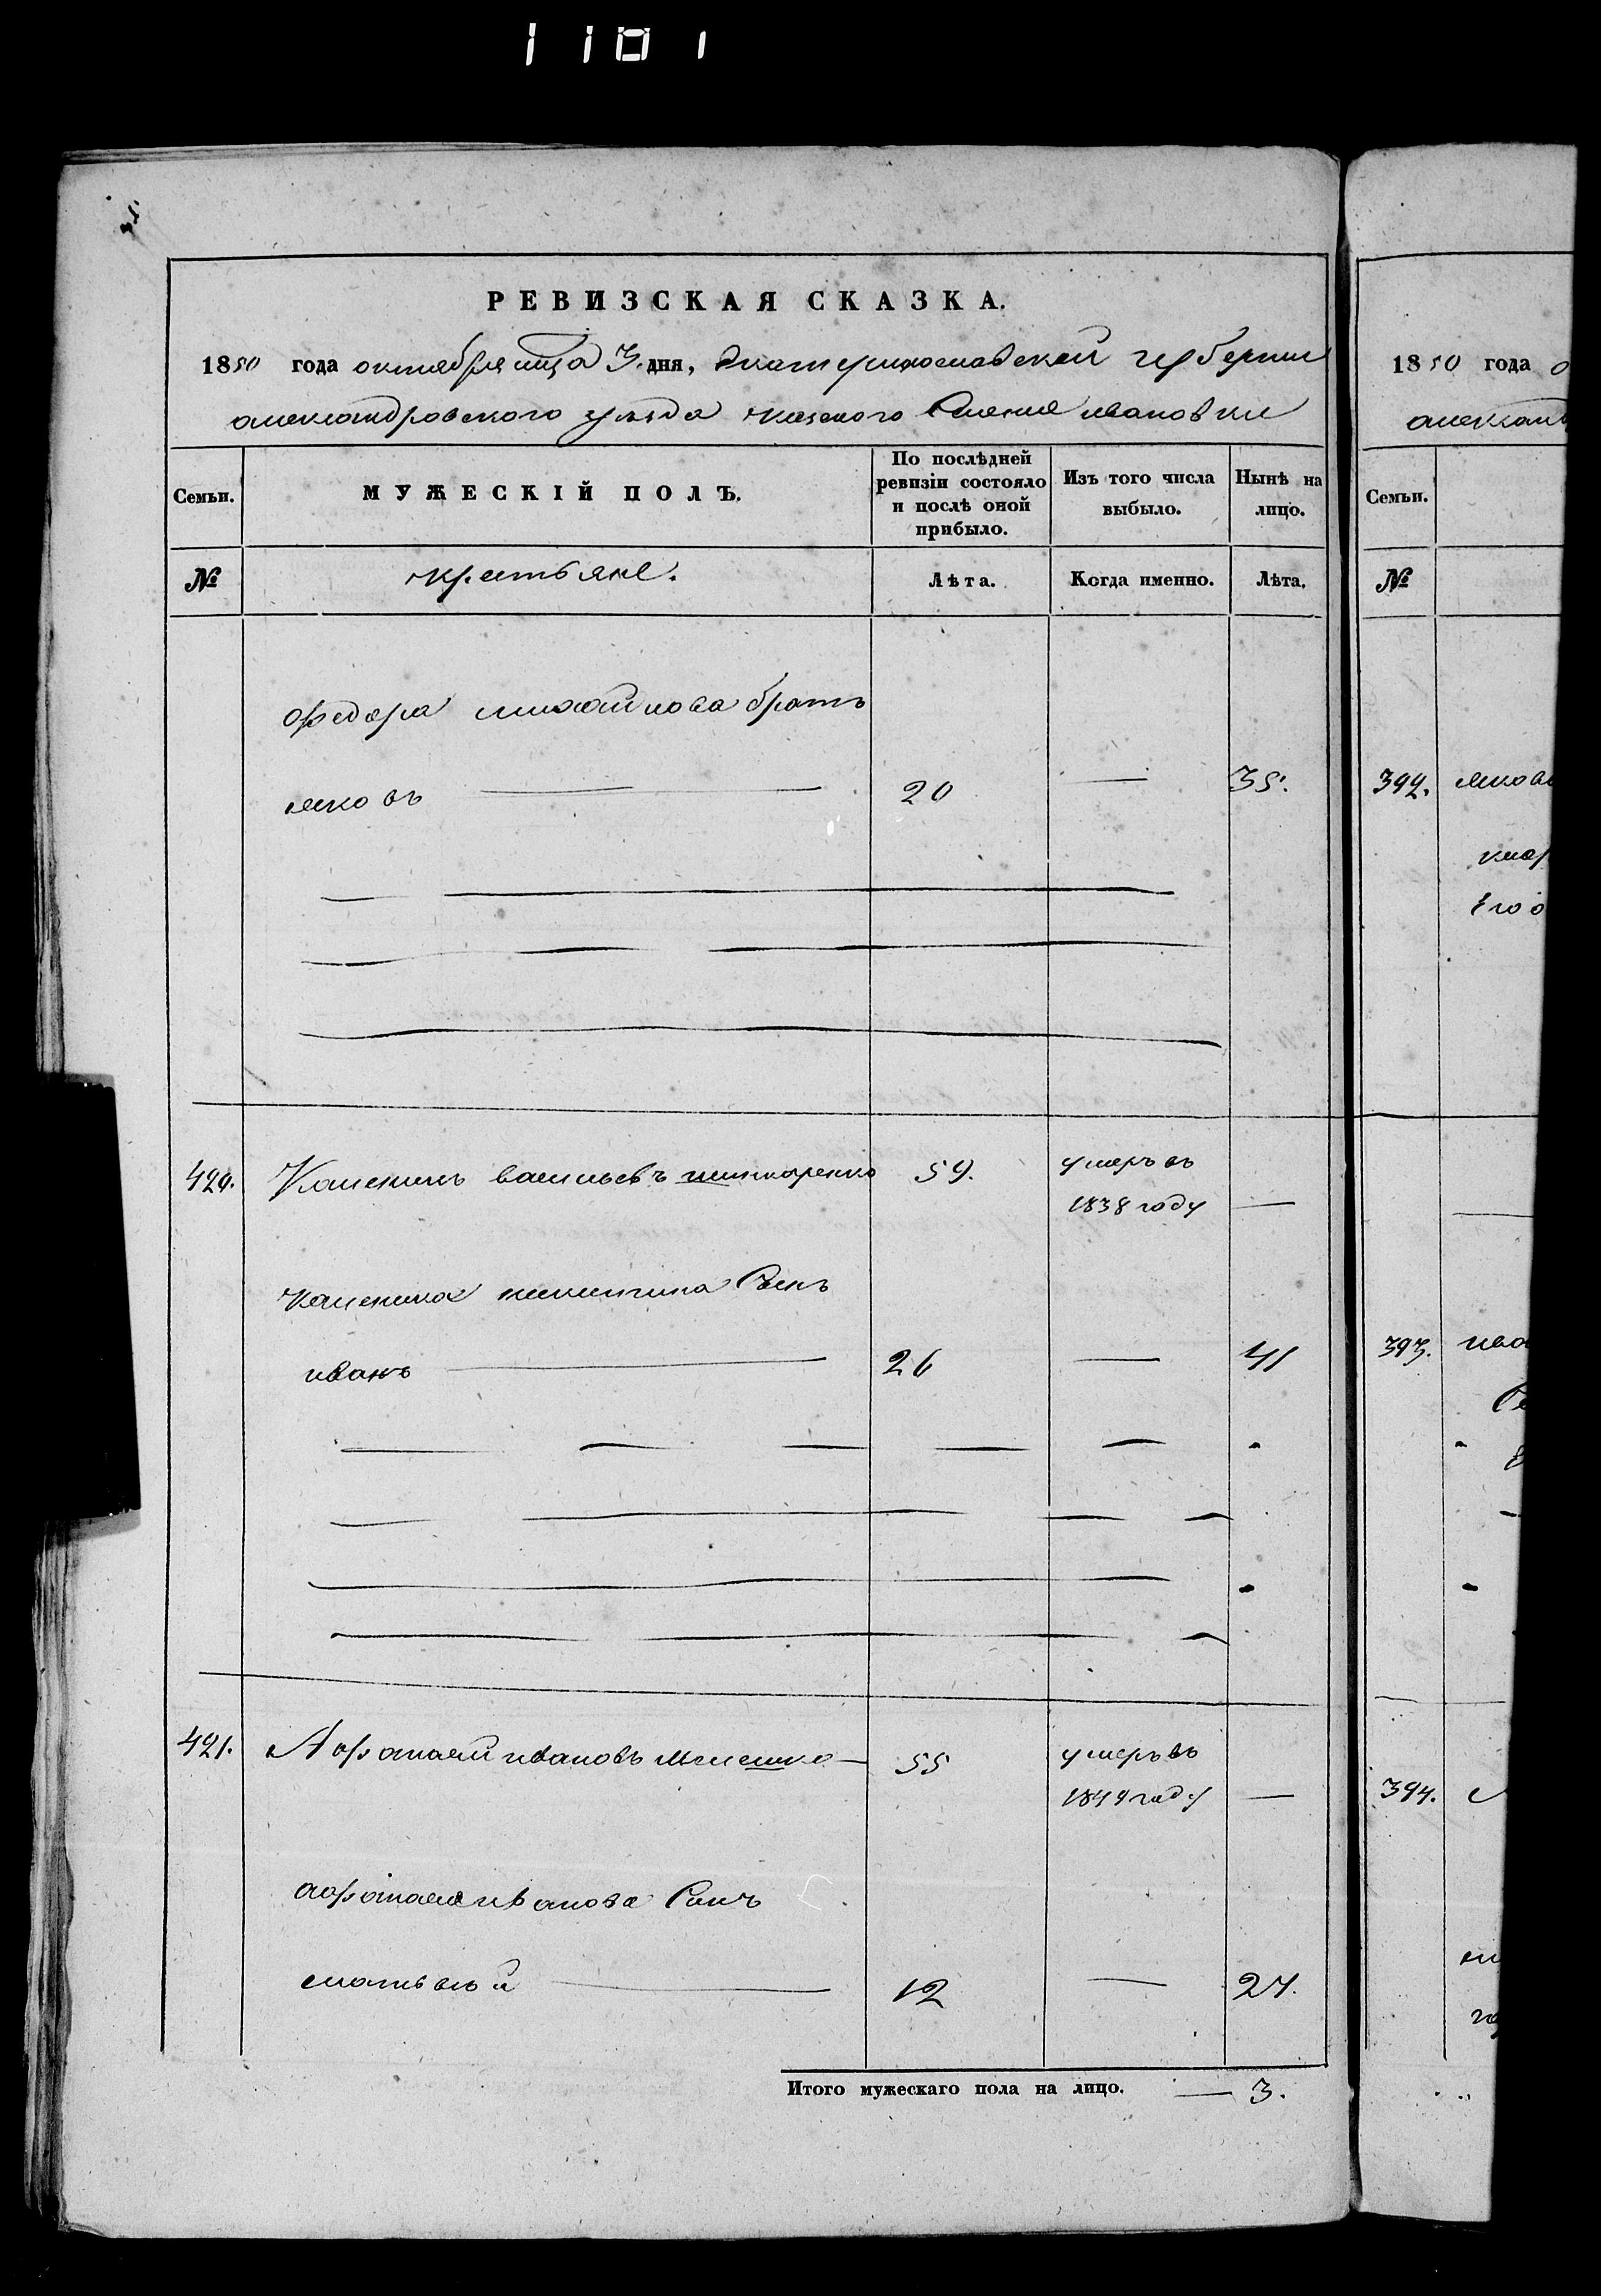 1101
РЕВИЗСКАЯ СКАЗКА.
1850 года октября мца 3. дня, Екатеринославской губернии
александровского уезда казеного Селения ивановки
Семьи.
МУЖЕСКІЙ ПОЛЪ.
По послѣдней ревизіи состояло и послѣ оной прибыло.
Изъ того числа выбыло.
Нынѣ на лицо.
№
крестьяне.
Лѣта.
Когда именно.
Лѣта.
федора михайлова братъ
яковъ 20 — 35.
420. Каленикъ васильевъ 59. умеръ въ
1838 году —
каленика Сынъ
иванъ 26 — 41
421. Афанасий ивановъ 55 умеръ въ
1849 году —
афанасия иванова Сынъ
матвѣй 12 — 27.
Итого мужескаго пола на лицо. — 3.
1850 года о
александ
Семьи.
№
392. яковъ
Его
393. ива
394.